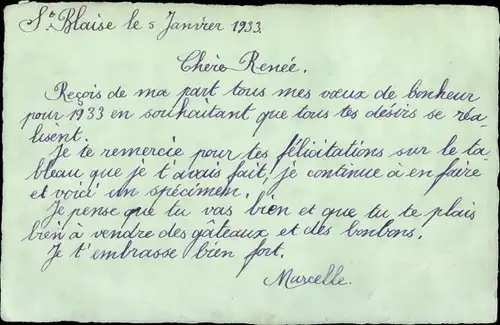 St Blaise le 5 Janvier 1933.
Chère Renée.
Reçois de ma part tous mes vœux de bonheur
pour 1933 en souhaitant que tous tes désirs se réa-
lisent.
Je te remercie pour tes félicitations sur le ta-
bleau que je t'avais fait, je continue à en faire
et voici un spécimen.
Je pense que tu vas bien et que tu te plais
bien à vendre des gâteaux et des bonbons.
Je t'embrasse bien fort.
Marcelle.